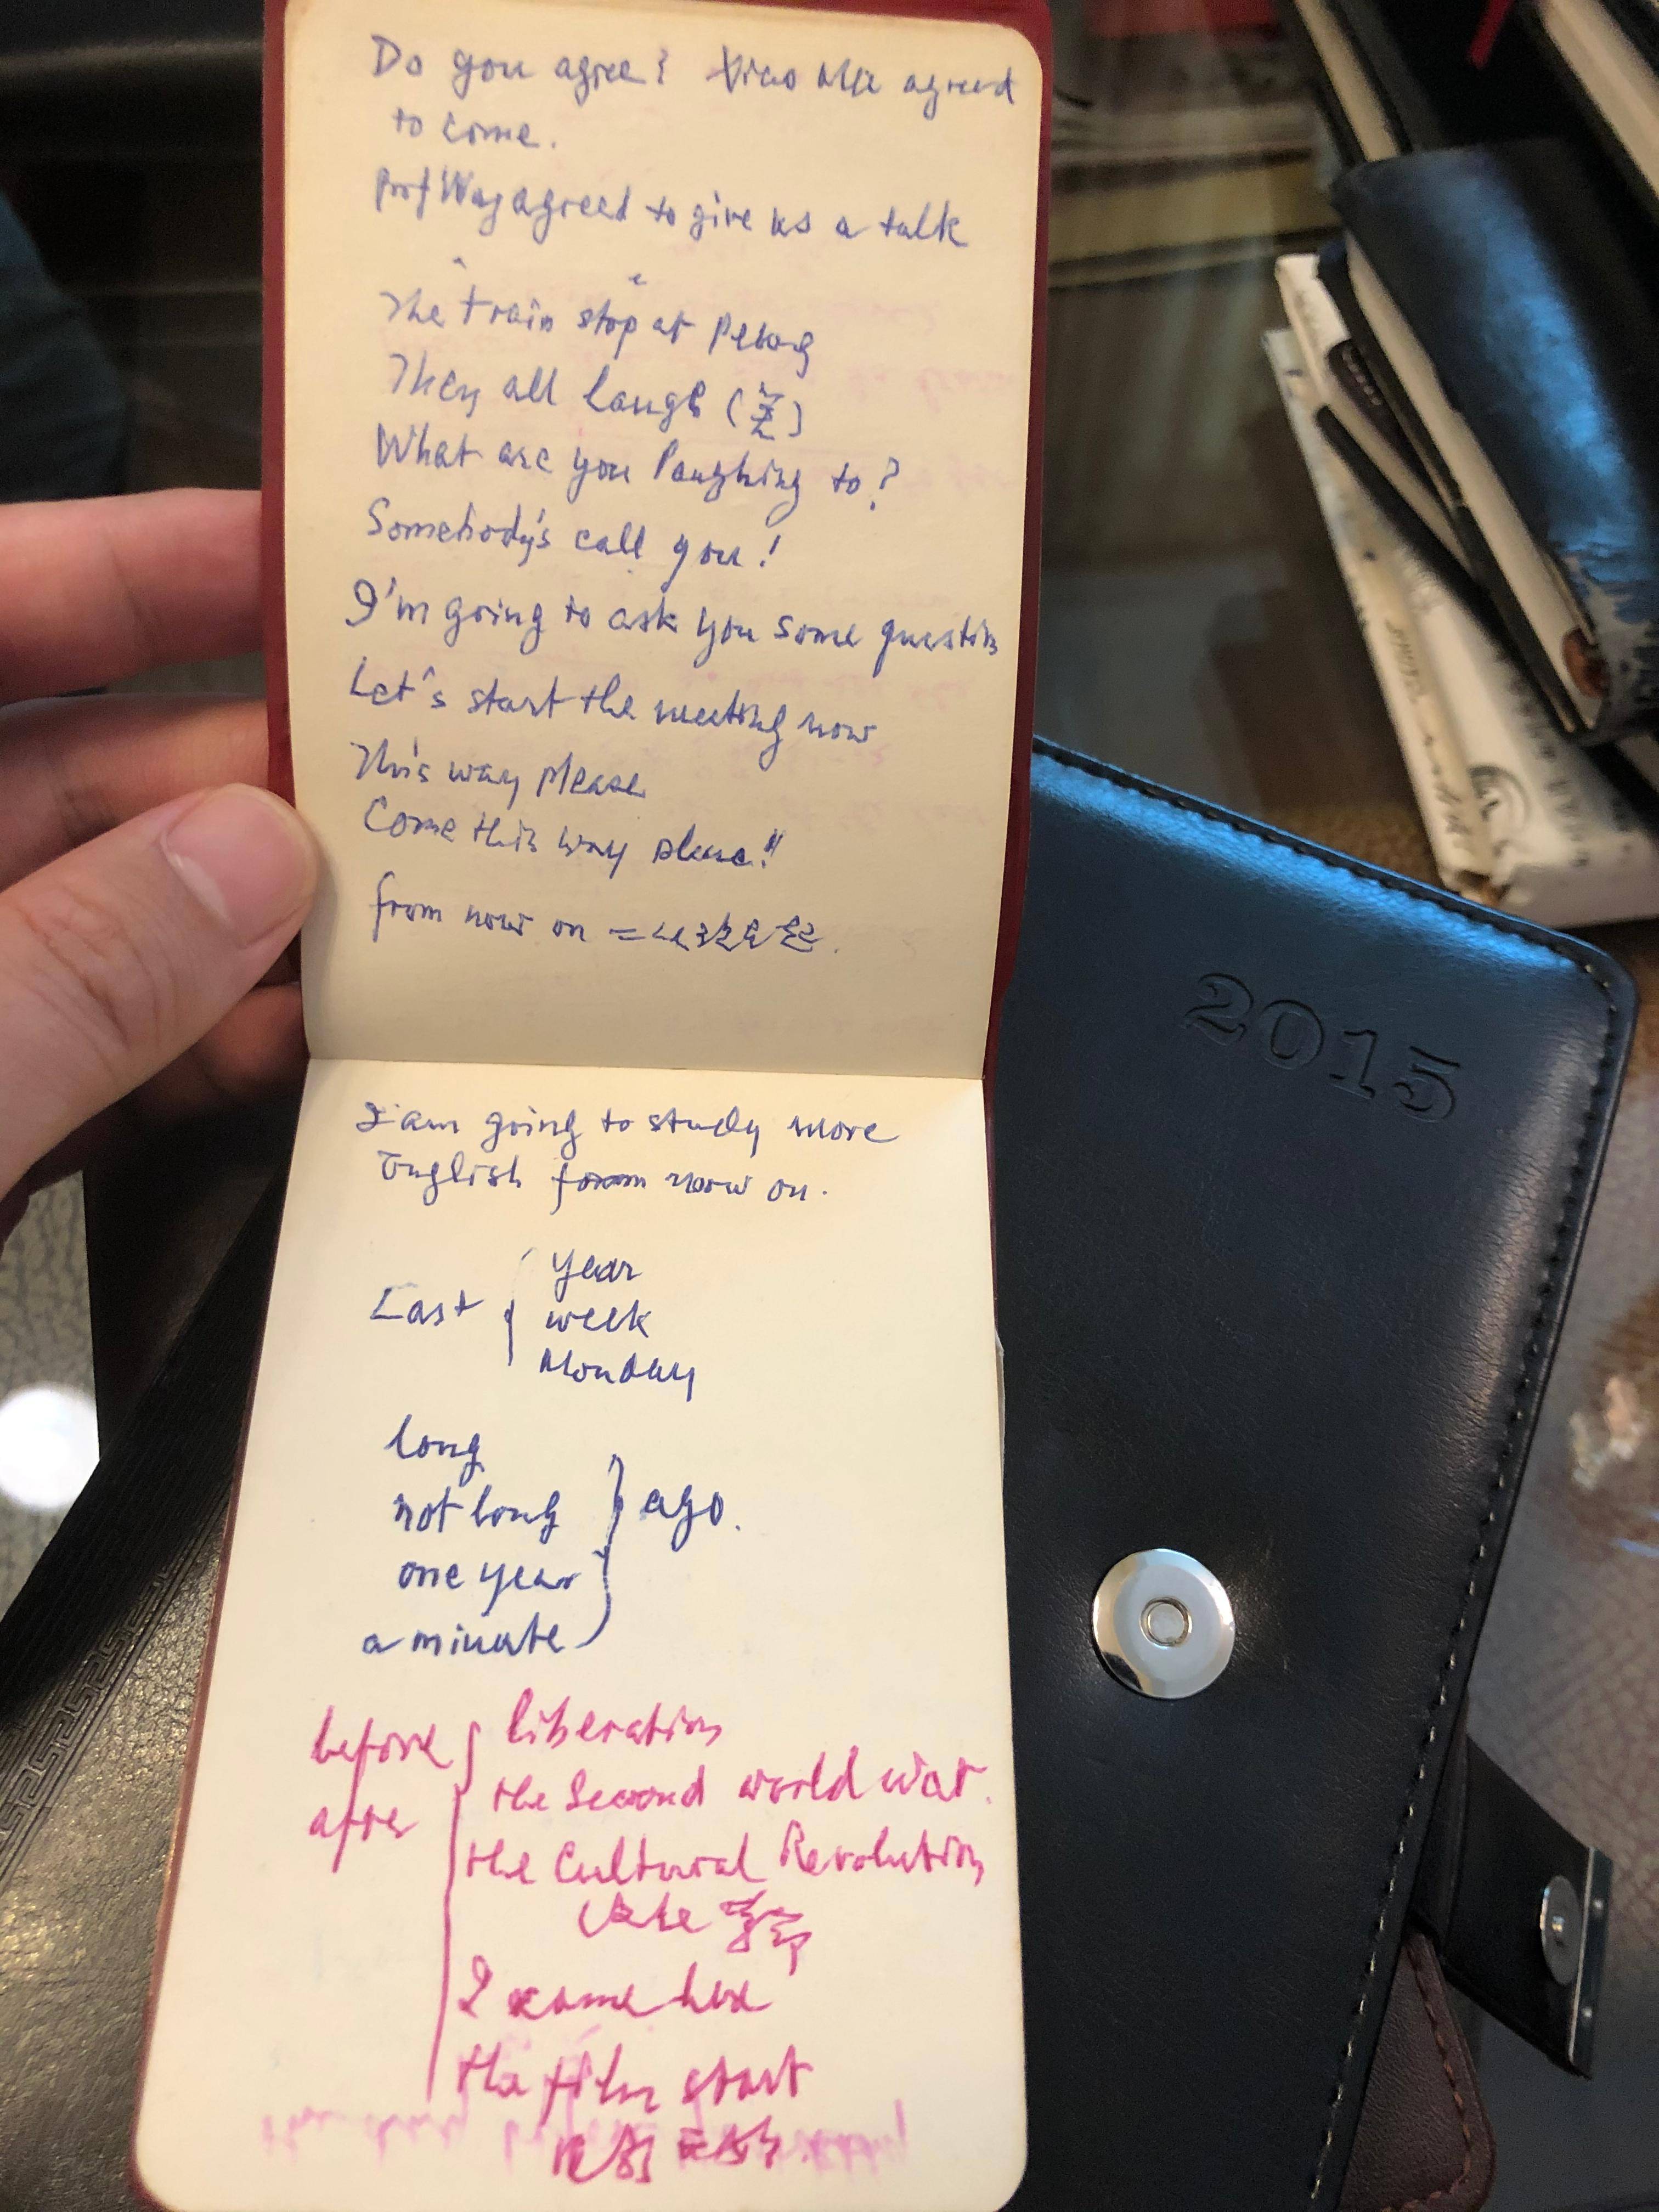 Do you agree? Xiao Mei agreed
to come.
Prof Wang agreed to give us a talk
The train stop at Peking
They all laugh (笑)
What are you laughing to?
Somebody's call you!
I'm going to ask you some question
Let's start the meeting now
This way please
Come this way please!!
from now on =
I am going to study more
English from now on.
Last { year
week
Monday
long
not long } ago.
one year
a minute
before { liberation
the Second world war.
after
the Cultural Revolution
I came here
the film start
2015